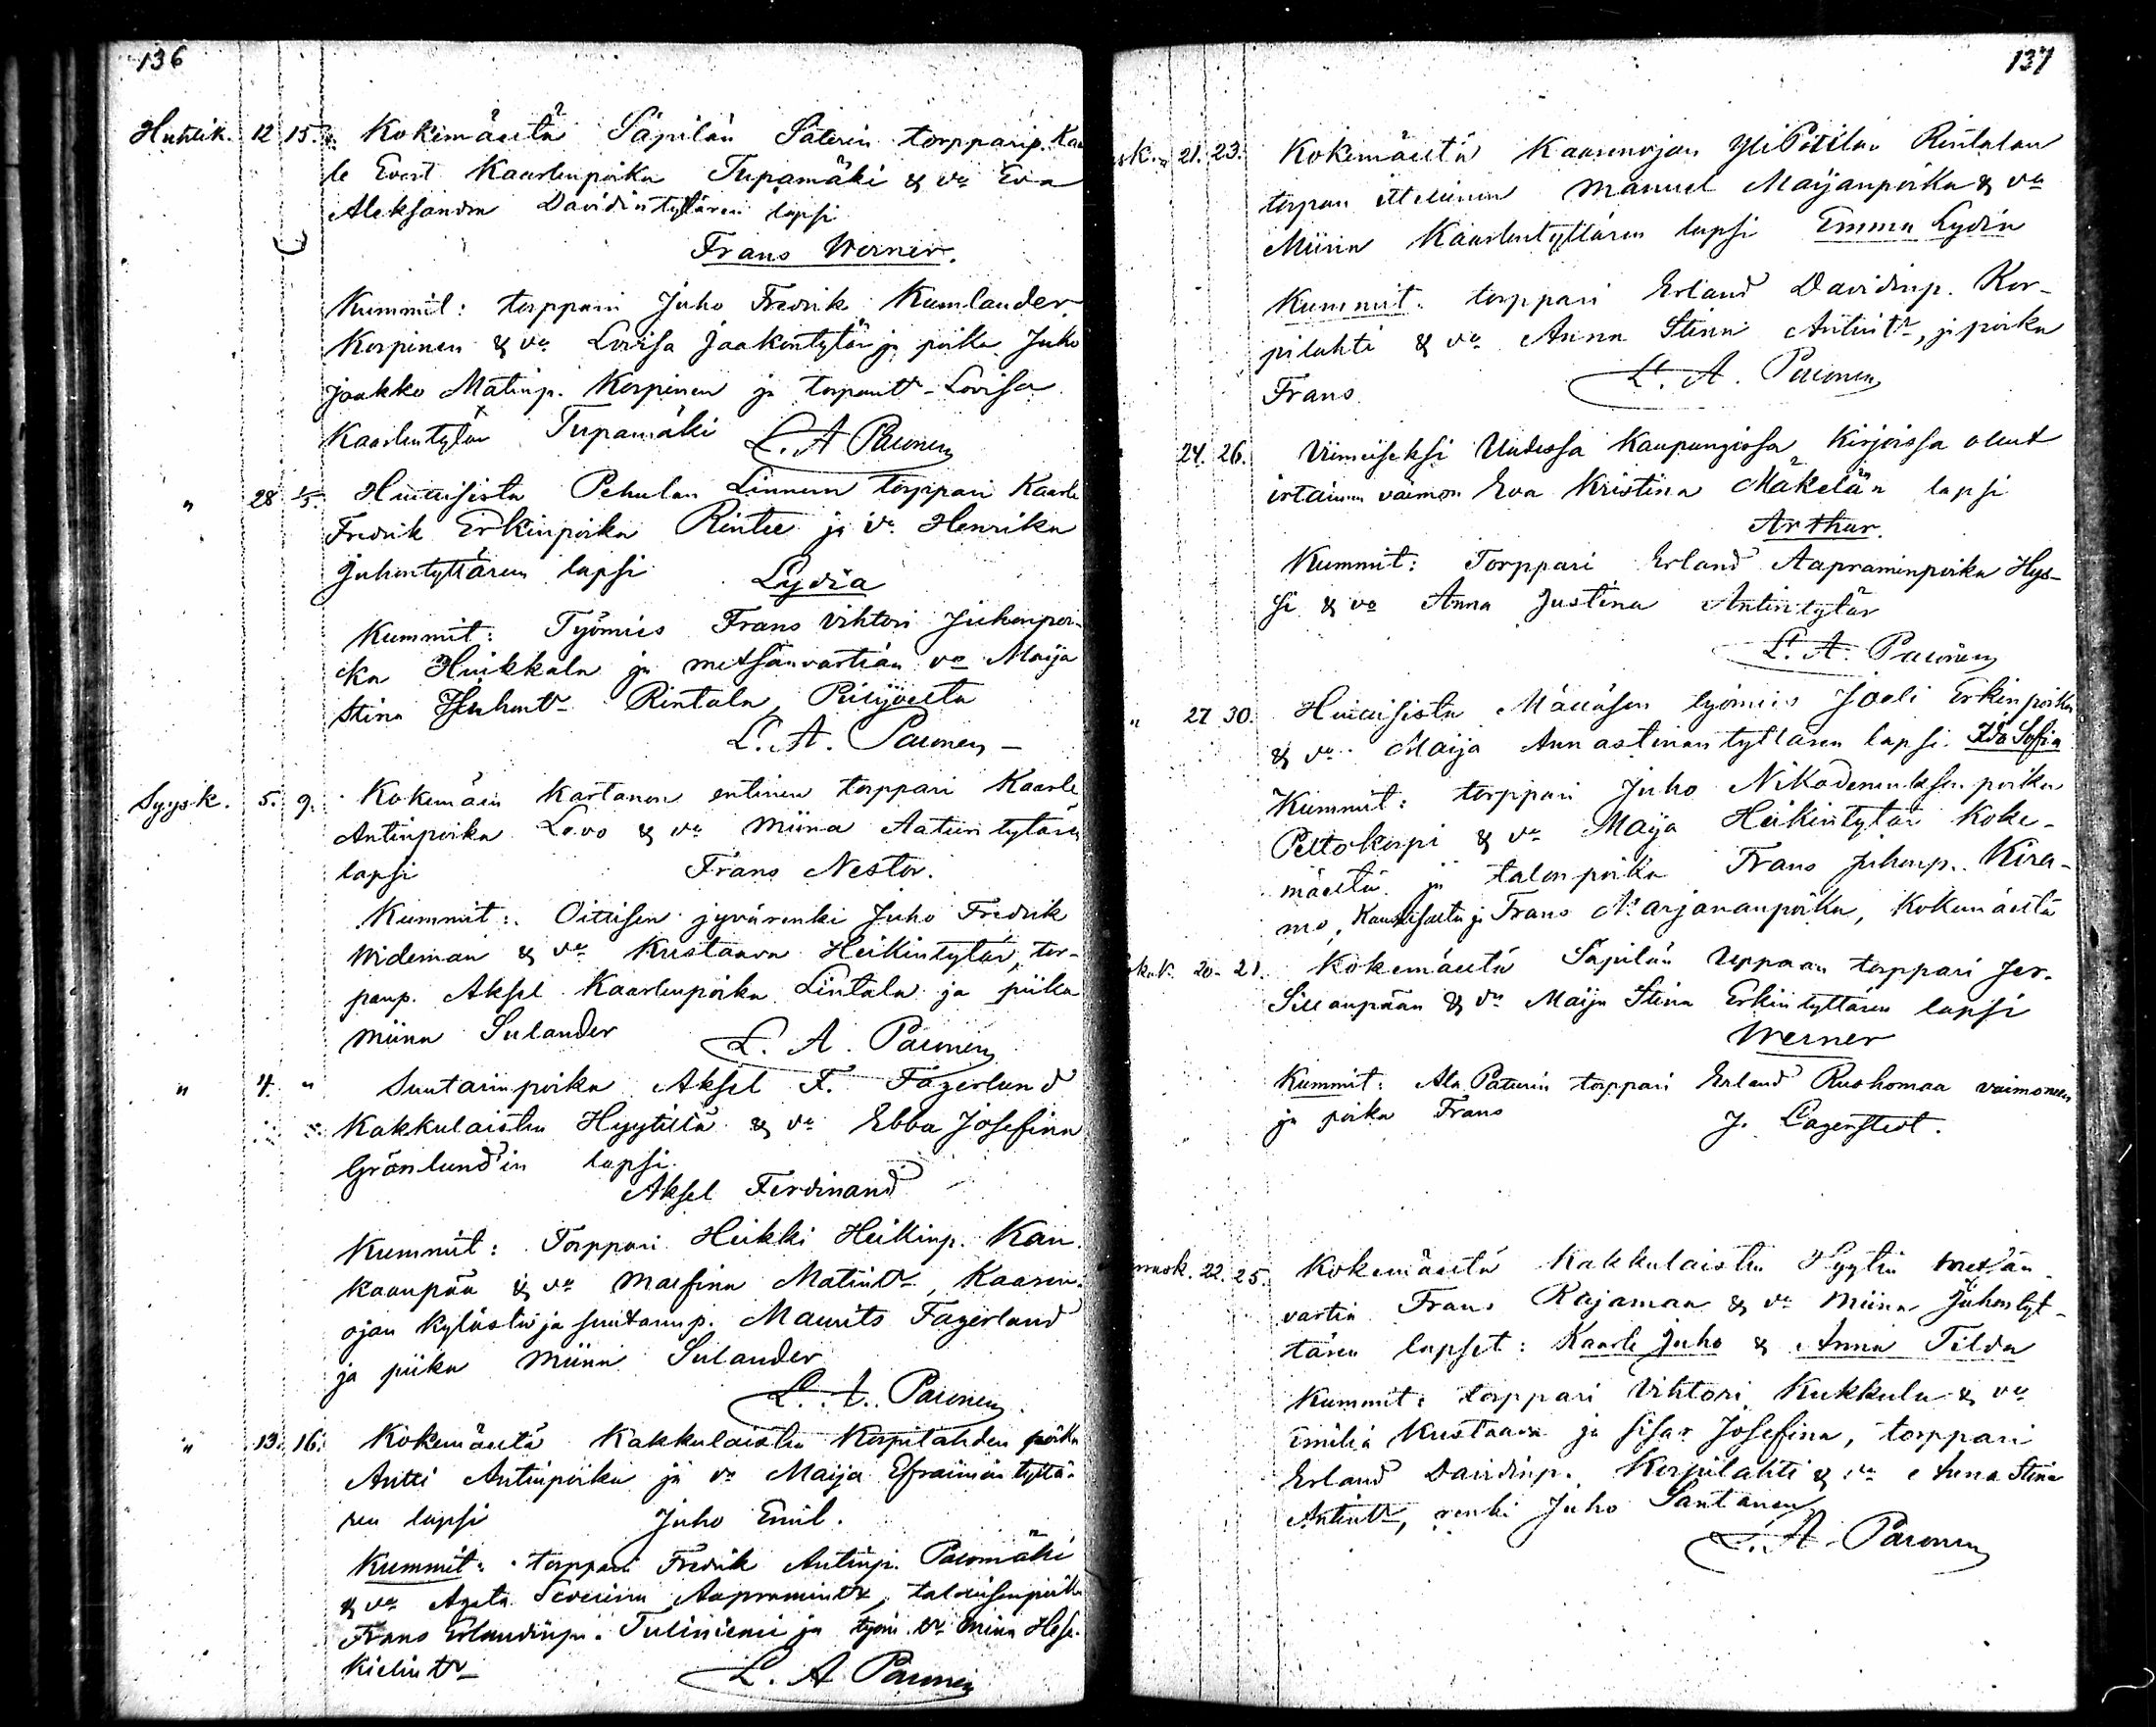 136
Huhtik. 12 15. Kokemäeltä Säpilän Säterin torpparip. Kaa
le Evert Kaarlenpoika Tupamäki & va Eva
Aleksandra Davidintyttären lapsi
Frans Werner.
Kummit: torppari Juho Fredrik Kumlander
Korpinen & va Lovisa Jaakontytär ja poika Juho
Jaakko Matinp. Korpinen ja torpantr Lovisa
Kaarlentytär Tupamäki L. A Paunen
" 28 1/5. Huiaisista Pehulan Linnun torppari Kaarle
Fredrik Erkinpoika Rintee ja va Henrika
Juhontyttären lapsi Lydia
Kummit: Työmies Frans Vihtori Juhonpoi-
ka Huikkala ja metsänvartian va Maija
Stina Juhontr Rintala,
L. A. Paunen
Syysk. 5. 9. Kokemäen Kartanon entinen torppari Kaarle
Antinpoika Levo & va Miina Aatuntytären
lapsi Frans Nestor.
Kummit: Oittisen jyvärenki Juho Fredrik
Wideman & va Kustaava Heikintytär, tor-
panp. Aksel Kaarlenpoika Lintala ja piika
Miina Sulander L. A. Paunen
" 4. " Suutarinpoika Aksel F. Fagerlund
Kakkulaisten Hyytilä & va Ebba Josefina
Grönlund'in lapsi.
Aksel Ferdinand
Kummit: Torppari Heikki Heikinp. Kan
kaanpää & va Malfina Matintr, Kaaren-
ojan kylästä ja suutarinp. Maurits Fagerlund
ja piika Miina Sulander
L. A. Paunen
" 13. 16. Kokemäeltä Kakkulaisten Korpilahden poika
Antti Antinpoika ja va Maija Efraimin tyttä-
ren lapsi Juho Emil.
Kummit: torppari Fredrik Antinp. Palomäki
& va Agata Severina Aapramintr, talollisenpoika
Frans Erlandinp. Tuliniemi ja va Miina Hese-
kielintr L. A Paunen
137
sk. 21. 23. Kokemäeltä Kaarenojan YliPitilän Rintalan
torpan itsellinen Manuel Maijanpoika & va
Miina Kaarlentyttären lapsi Emma Lydia
Kummit: torppari Erland Davidinp. Kor-
pilahti & va Anna Stina Antintr, ja poika
Frans. L. A. Paunen
24. 26. Viimeiseksi Uudessa Kaupungissa kirjoissa ollut
irtainen vaimon Eva Kristina Mäkelän lapsi
Arthur.
Kummit: Torppari Erland Aapraminpoika Hys-
si & va Anna Justina Antintytär
L. A. Paunen
" 27 30. Huiaisista työmies Joeli Erkinpoika
& va Maija Annastinan tyttären lapsi. Ida Sofia
Kummit: torppari Juho Nikodemuksen poika
Peltokorpi & va Maija Heikintytär Koke-
mäeltä ja talonpoika Frans Juhonp. Kira-
mo, ja Frans Marjananpoika, Kokemäeltä
20. 21. Kokemäeltä Säpilän Uppaan torppari Jer.
Sillanpään & va Maija Stina Erkintyttären lapsi
Werner
Kummit: Ala Paturin torppari Erland Ruohomaa vaimoneen
ja poika Frans J. Lagerstedt.
mask. 22. 25. Kokemäeltä Kakkulaisten Hyytin metsän-
vartia Frans Rajamaa & va Miina Juhontyt-
tären lapset: Kaarle Juho & Anna Tilda
Kummit: torppari Vihtori Kukkula & va
Emilia Kustaava ja sisar Josefina, torppari
Erland Davidinp. Korpilahti & va Anna Stina
Antintr, renki Juho Santanen
L. A. Paunen